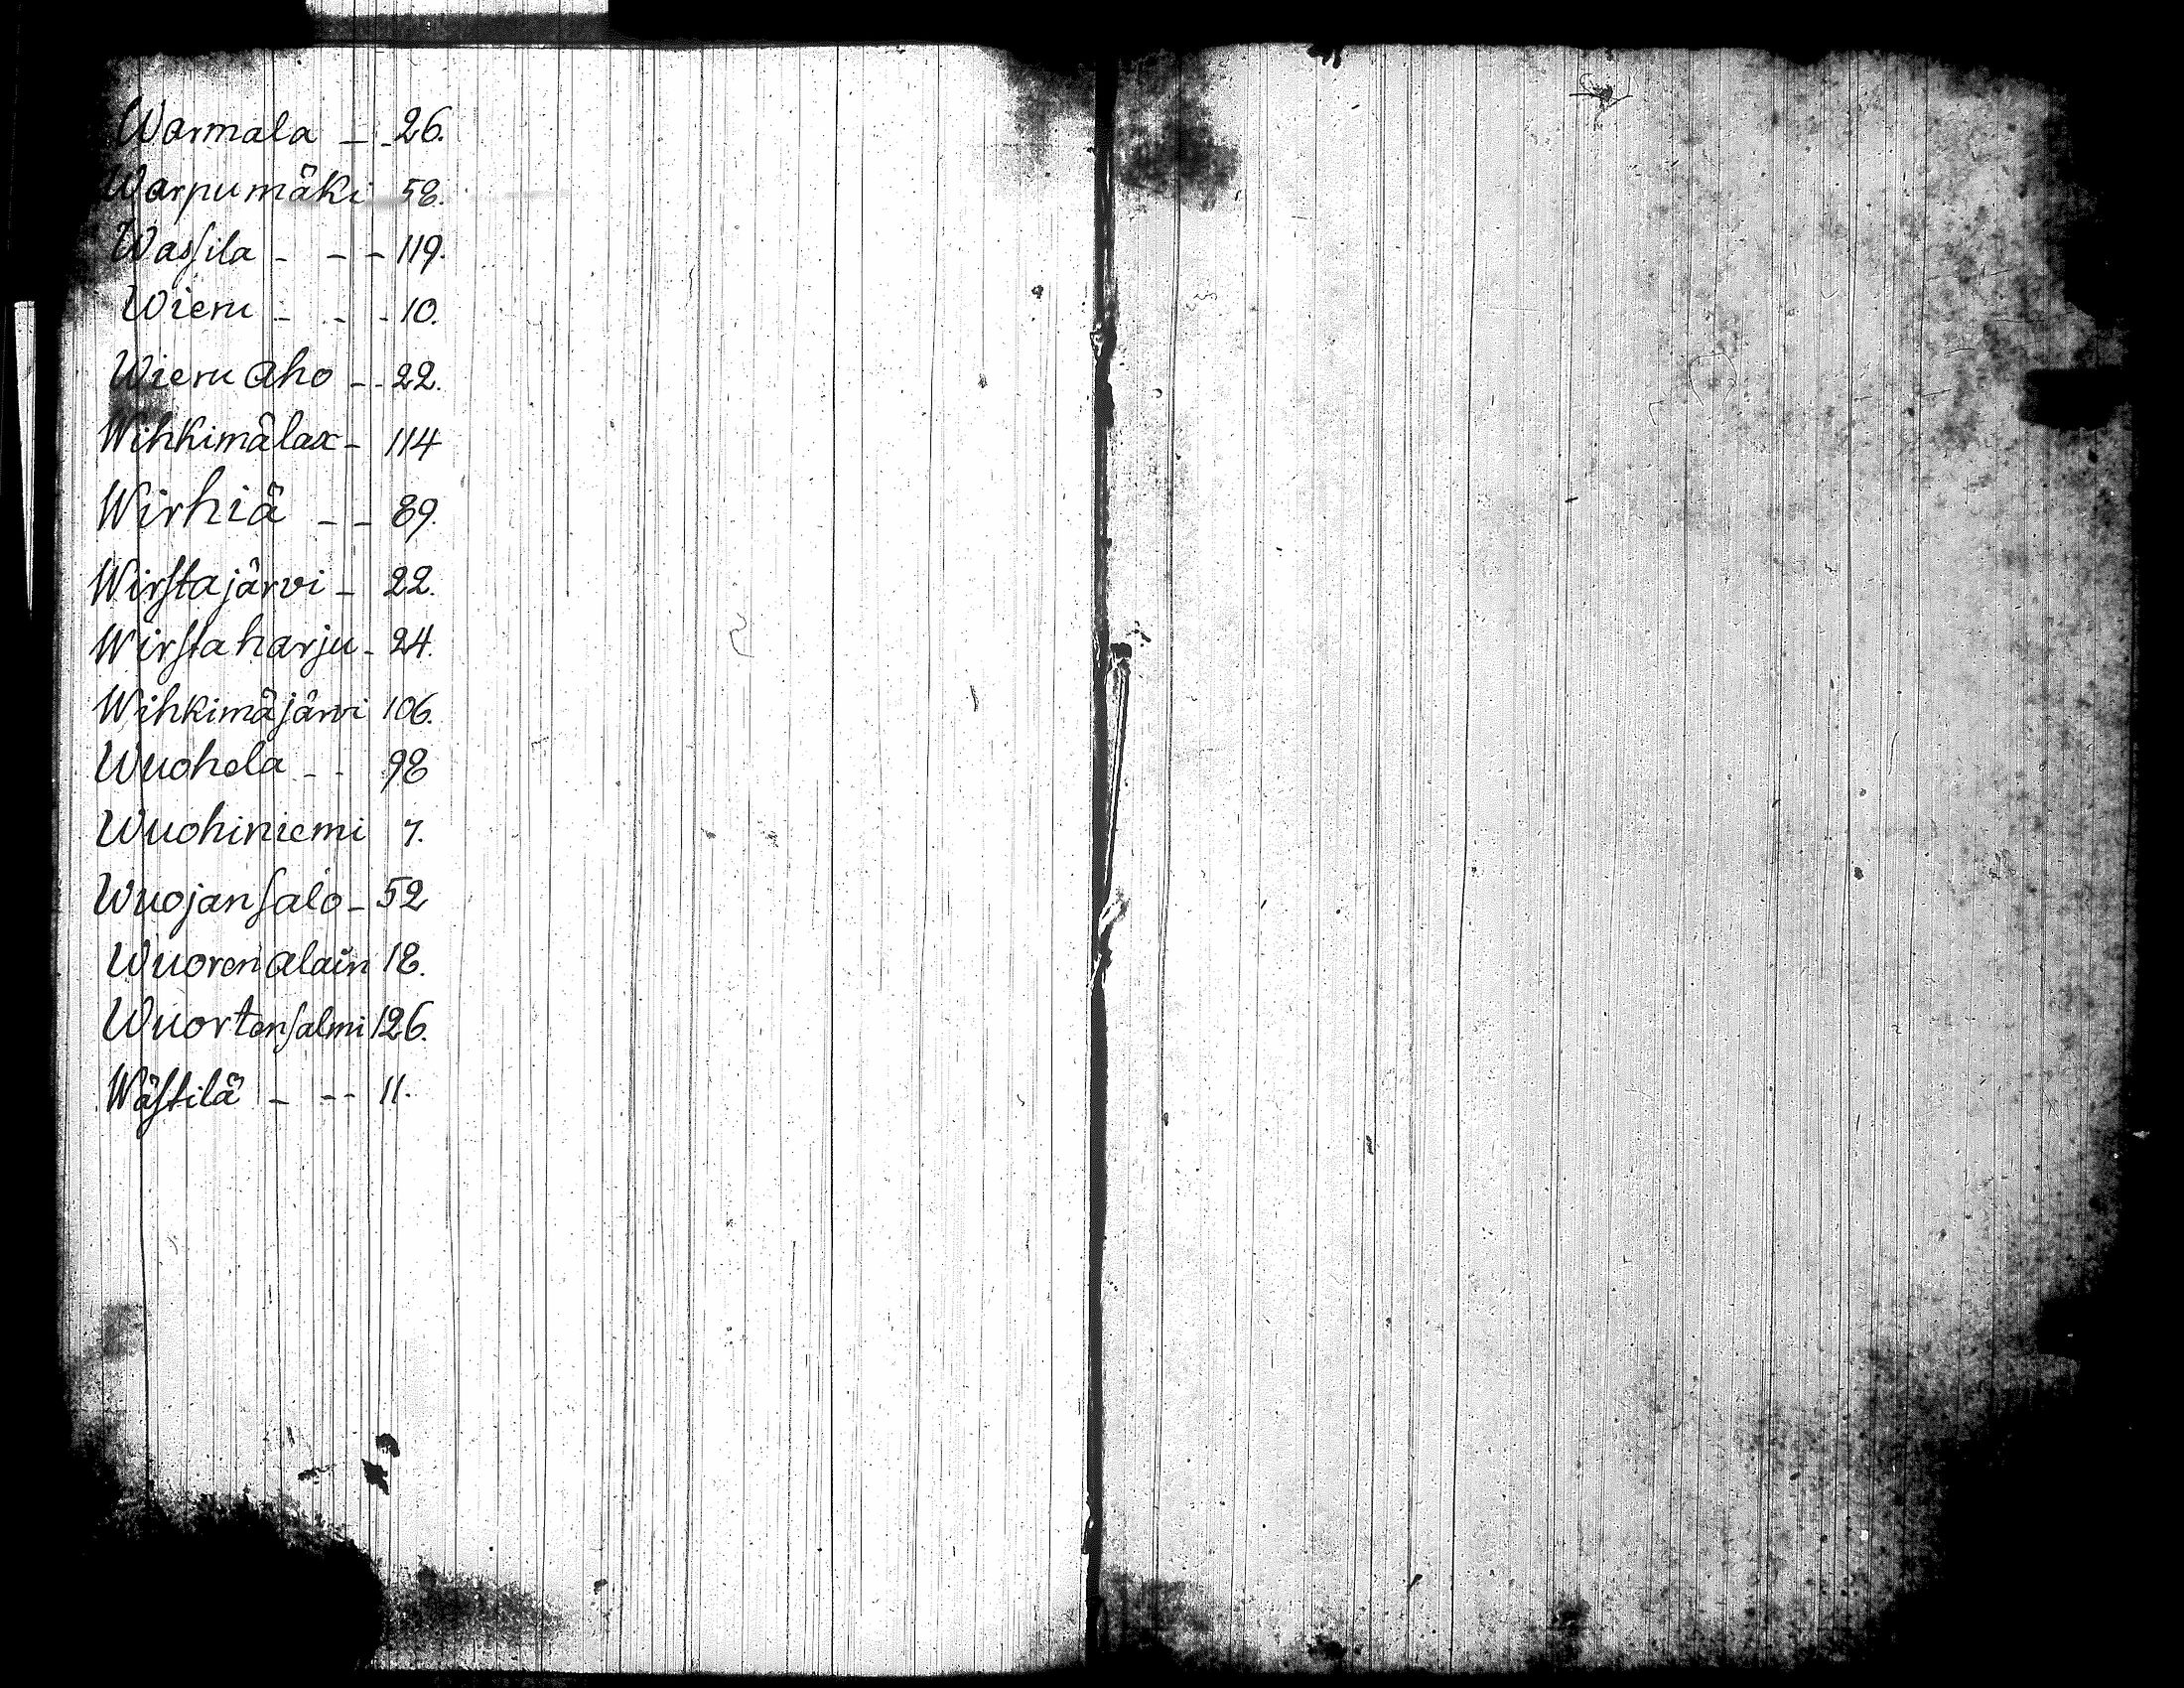 Warmala - - 26.
Warpumäki 58.
Wassila - - - 119.
Wieru - - - 10.
Wieru Aho - - 22.
Wihkimälax - 114
Wirhiä - - 89.
Wirstajärvi - 22.
Wirstaharju - 24.
Wihkimäjärvi 106.
Wuohela - - 98
Wuohiniemi 7.
Wuojansalo - 52
Wuorenalain 18.
Wuortensalmi 126.
Wästilä - - - 11.